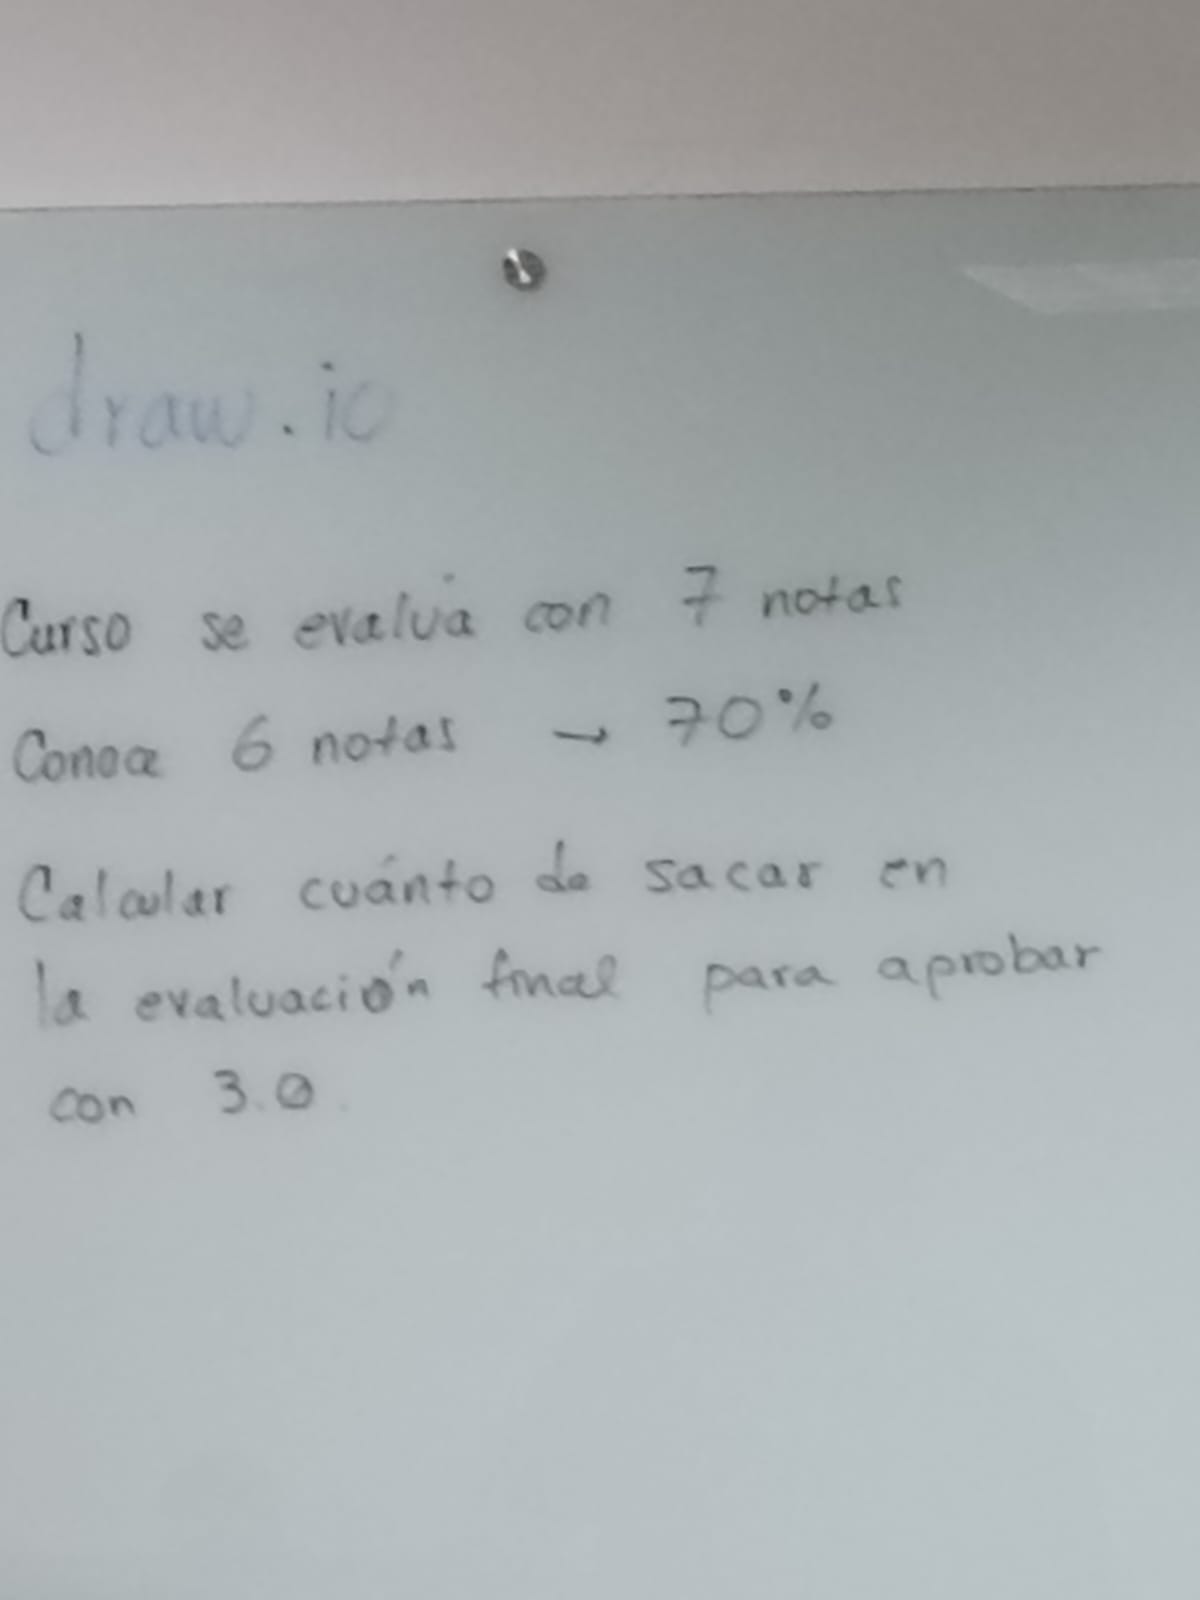 draw.io
Curso se evalúa con 7 notas
Conoce 6 notas → 70%
Calcular cuánto de sacar en
la evaluación final para aprobar
con 3.0